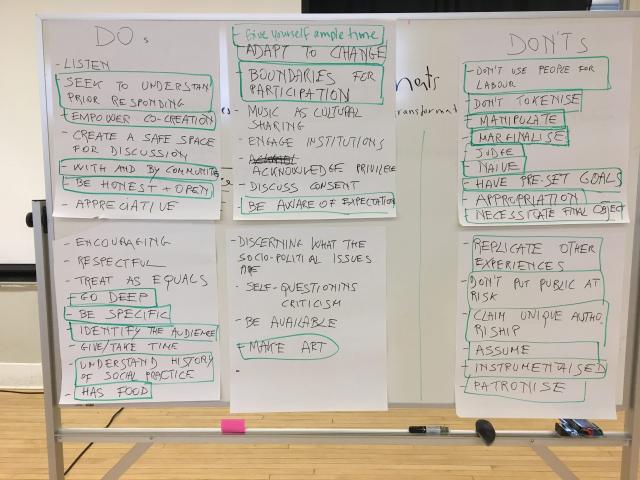 DO.
- LISTEN
- SEEK TO UNDERSTAND
PRIOR RESPONDING
- EMPOWER CO-CREATION
- CREATE A SAFE SPACE
FOR DISCUSSION
- WITH AND BY COMMUNITY
- BE HONEST + OPEN
- APPRECIATIVE
- ENCOURAGING
- RESPECTFUL
- TREAT AS EQUALS
- GO DEEP
- BE SPECIFIC
- IDENTIFY THE AUDIENCE
- GIVE/TAKE TIME
- UNDERSTAND HISTORY
OF SOCIAL PRACTICE
- HAS FOOD
- Give yourself ample time
- ADAPT TO CHANGE
- BOUNDARIES FOR
PARTICIPATION
- MUSIC AS CULTURAL
SHARING
- ENGAGE INSTITUTIONS
- ACKNOWLEDGE PRIVILEGE
- DISCUSS CONSENT
- BE AWARE OF EXPECTATION
- DISCERNING WHAT THE
SOCIO-POLITICAL ISSUES
ARE
- SELF-QUESTIONING
CRITICISM
- BE AVAILABLE
- MAKE ART
-
nts
transformat
DON'TS
- DON'T USE PEOPLE FOR
LABOUR
- DON'T TOKENISE
- MANIPULATE
- MARGINALISE
- JUDGE
- NAIVE
- HAVE PRE-SET GOALS
- APPROPRIATION
- NECESSITATE FINAL OBJECT
- REPLICATE OTHER
EXPERIENCES
- DON'T PUT PUBLIC AT
RISK
- CLAIM UNIQUE AUTHO-
RISHIP
- ASSUME
- INSTRUMENTALISED
- PATRONISE